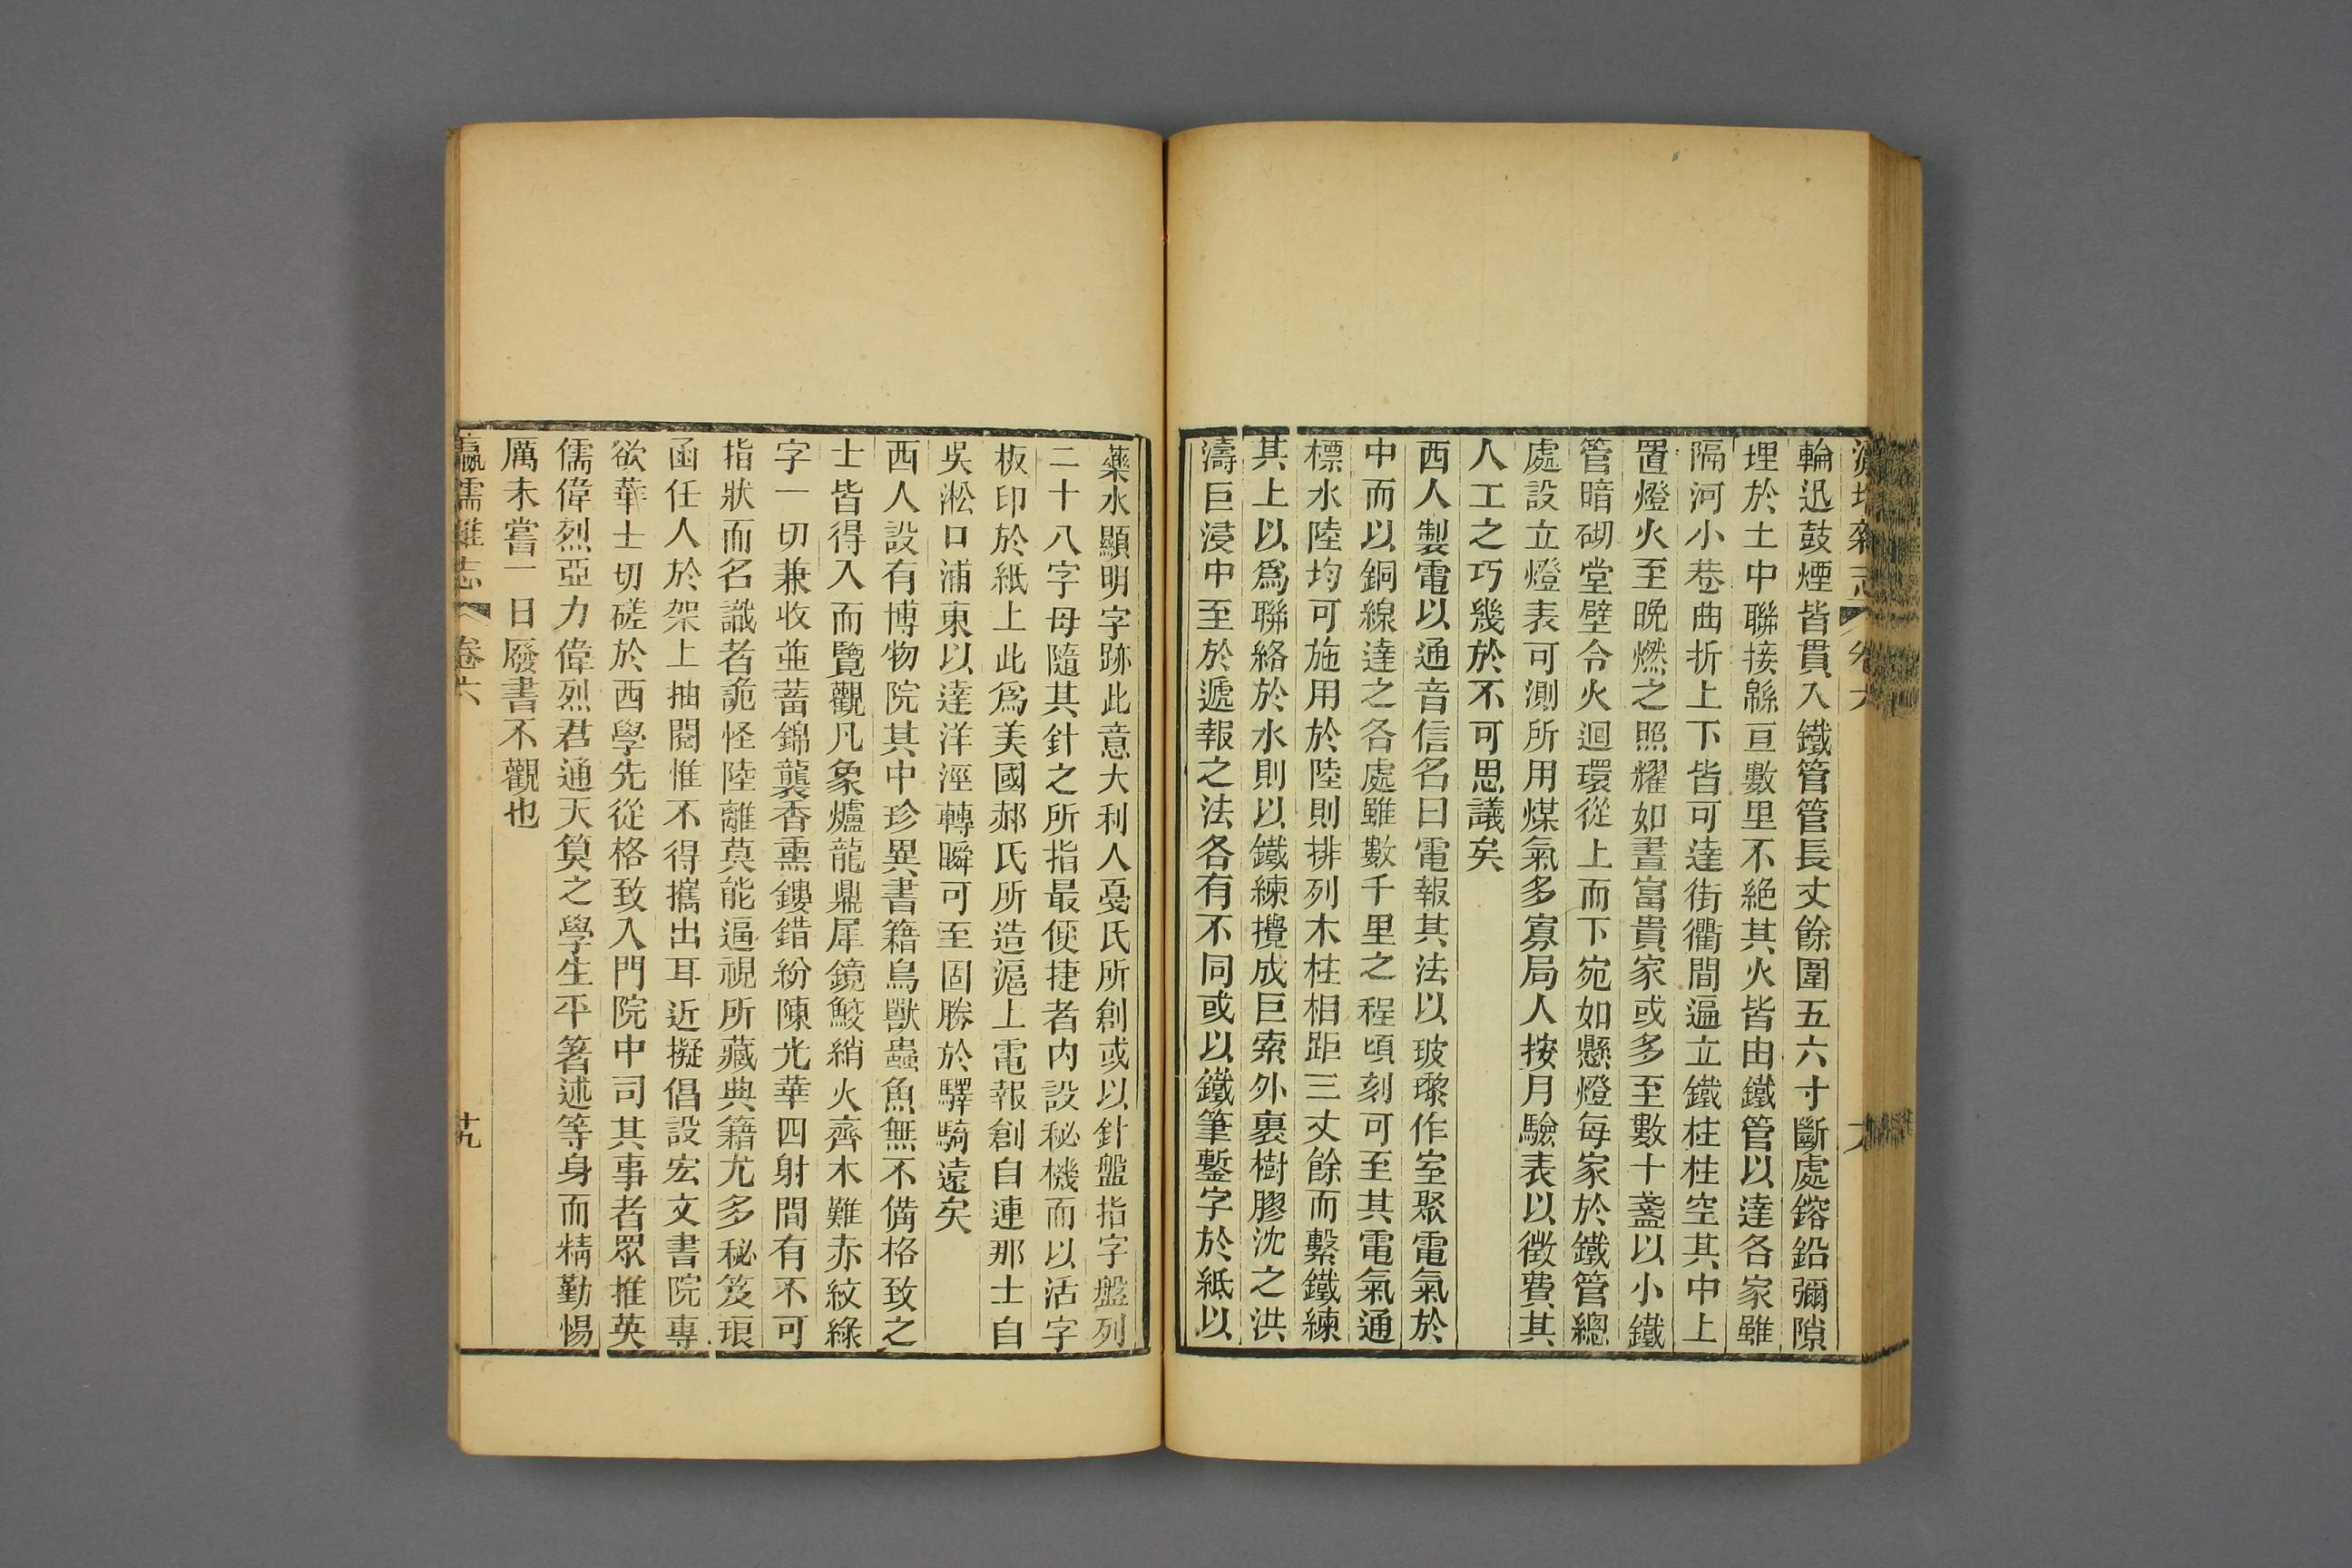 輪迅鼓煙皆貫入鐵管管長丈餘圍五六寸斷處鎔鉛彌隙
埋於土中聯接緜亘數里不絕其火皆由鐵管以達各家雖
隔河小巷曲折上下皆可達街衢間遍立鐵柱柱空其中上
置燈火至晚燃之照耀如晝富貴家或多至數十盞以小鐵
管暗砌堂壁令火迴環從上而下宛如懸燈每家於鐵管總
處設立燈表可測所用煤氣多寡局人按月驗表以徵費其
人工之巧幾於不可思議矣
西人製電以通音信名曰電報其法以玻瓈作室聚電氣於
中而以銅線達之各處雖數千里之程頃刻可至其電氣通
標水陸均可施用於陸則排列木柱相距三丈餘而繫鐵練
其上以爲聯絡於水則以鐵練攪成巨索外裹樹膠沈之洪
濤巨浸中至於遞報之法各有不同或以鐵筆鏨字於紙以
藥水顯明字跡此意大利人戞氏所創或以針盤指字盤列
二十八字母隨其針之所指最便捷者内設秘機而以活字
板印於紙上此爲美國郝氏所造滬上電報創自連那士自
吳淞口浦東以達洋涇轉瞬可至固勝於驛騎遠矣
西人設有博物院其中珍異書籍鳥獸蟲魚無不備格致之
士皆得入而覽觀凡象爐龍鼎犀鏡鮫綃火齊木難赤紋綠
字一切兼收並蓄錦襲香熏鏤錯紛陳光華四射間有不可
指狀而名識者詭怪陸離莫能逼視所藏典籍尤多秘笈琅
函任人於架上抽閱惟不得攜出耳近擬倡設宏文書院專
欲華士切磋於西學先從格致入門院中司其事者眾推英
儒偉烈亞力偉烈君通天算之學生平箸述等身而精勤惕
厲未嘗一日廢書不觀也
瀛壖雜志 卷六 廿九